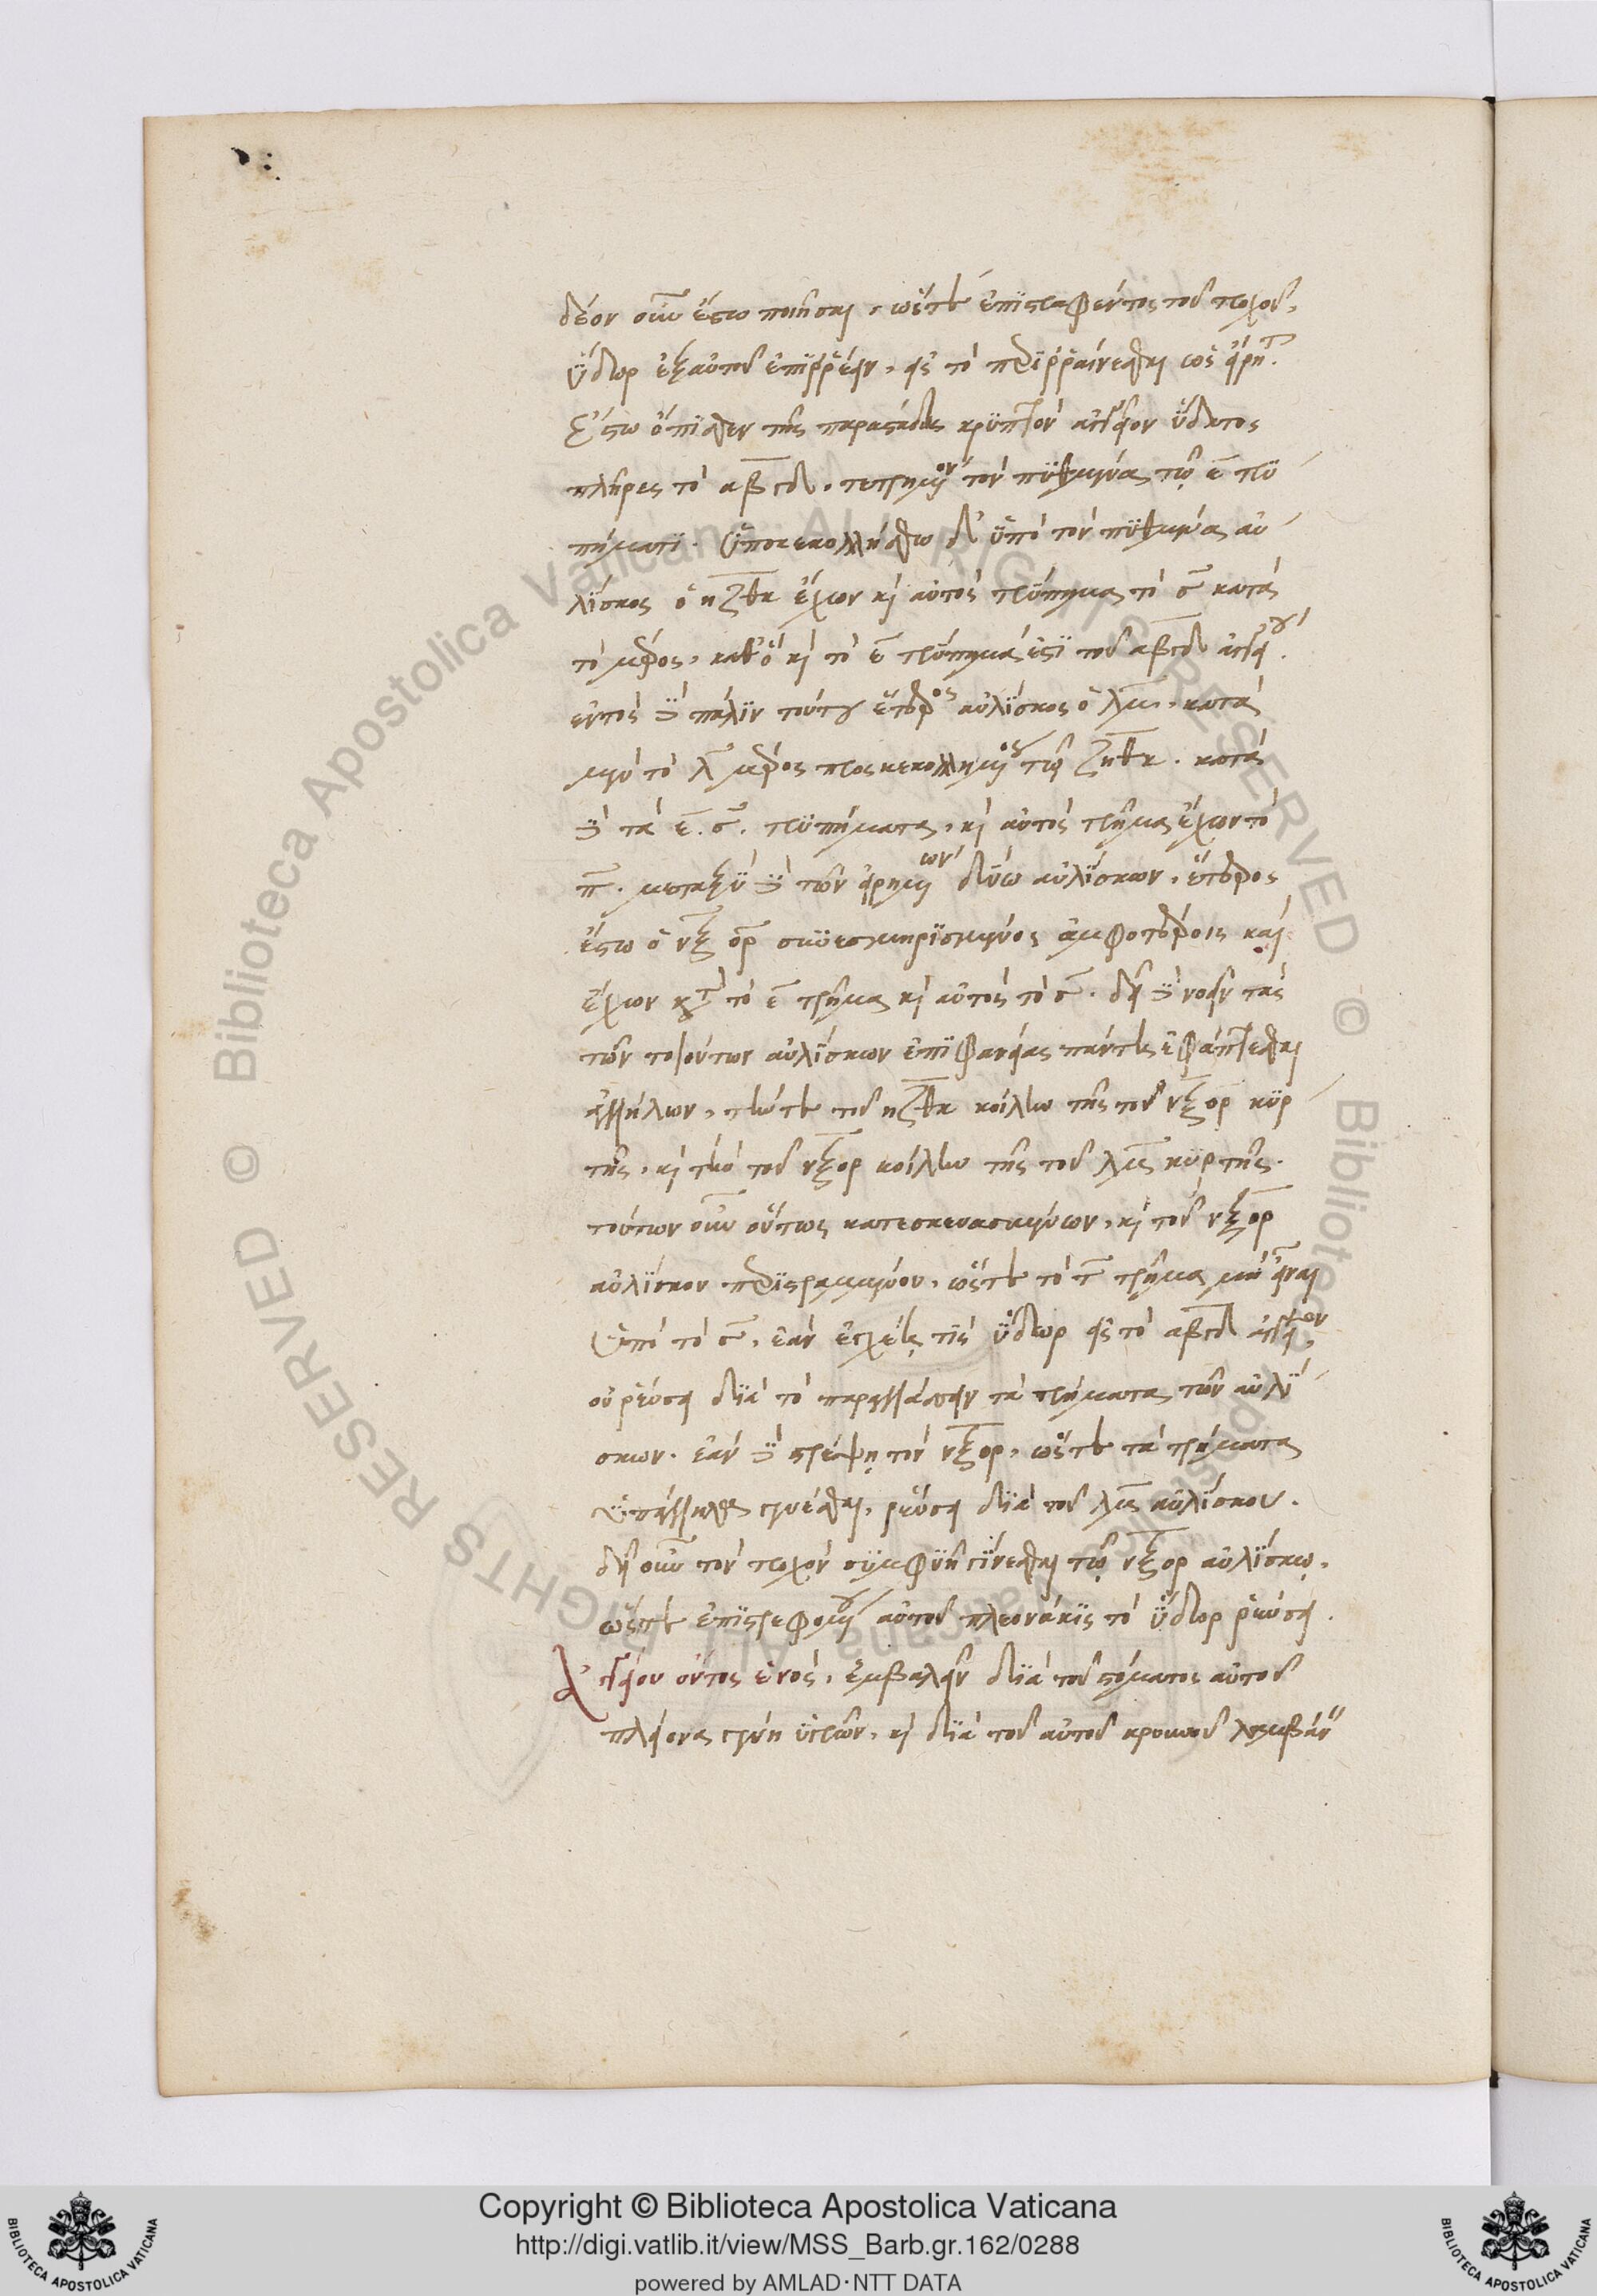 δέον οὖν ἔστω ποιῆσαι, ὥστε ἐπιστραφέντος τοῦ τροχοῦ,
ὕδωρ ἐξ αὐτοῦ ἐπιρρέειν, εἰς τὸ περιρραίνεσθαι ὡς εἴρητ.
Ἔστω ὄπισθεν τῆς παραστάδος κρυπτὸν ἀγγεῖον ὕδατος
πλῆρες τὸ αβγδ. τετρημένον τὸν πυθμένα τῷ ε τρυ
πήματι. ὑποκεκολλήσθω δ' ὑπὸ τὸν πυθμένα αὐ
λίσκος ὁ ηζθκ ἔχων κὶ αὐτὸς τρύπημα τὸ σ κατὰ
τὸ μέρος, καθ' ὃ κὶ τὸ ε τρύπημά ἐστι τοῦ αβγδ ἀγγείου.
ἐντὸς δὲ πάλιν τούτου ἕτερος αὐλίσκος ὁ λμ. κατὰ
μὲν τὸ λ μέρος προσκεκολλημένος τῷ ζηθκ. κατὰ
δὲ τὰ ε. σ. τρυπήματα, κὶ αὐτὸς τρῆμα ἔχων τὸ
π. μεταξὺ δὲ τῶν εἰρημένων δύω αὐλίσκων, ἕτερος
ἔστω ὁ νξ ορ συνεσμηρισμένος ἀμφοτέροις καὶ
ἔχων κατὰ τὸ ε τρῆμα κὶ αὐτὸς τὸ σ. δεῖ δὲ νοεῖν τὰς
τῶν τοιούτων αὐλίσκων ἐπιφανείας πάντας ἐφάπτεσθαι
ἀλλήλων, τήν τε τοῦ ηζθκ κοίλην τῆς τοῦ νξορ κυρ
τῆς, κὶ τὴν τοῦ νξορ κοίλην τῆς τοῦ λμ κυρτῆς.
τούτων οὖν οὕτως κατεσκευασμένων, κὶ τοῦ νξορ
αὐλίσκου περιεστραμμένου, ὥστε τὸ τ τρῆμα μὴ εἶναι
ὑπὸ τὸ σ, ἐὰν ἐγχέῃς τις ὕδωρ εἰς τὸ αβγδ ἀγγεῖον,
οὐ ῥεύσει διὰ τὸ παραλλάσσειν τὰ τρήματα τῶν αὐλί
σκων. ἐὰν δὲ στρέψῃ τὸν νξορ, ὥστε τὰ τρήματα
ὑπάλληλα γενέσθαι, ῥεύσει διὰ τοῦ λμ αὐλίσκου.
δεῖ οὖν τὸν τροχὸν συμφυῆ γίνεσθαι τῷ νξορ αὐλίσκῳ,
ὥστε ἐπιστρεφομένου αὐτοῦ πλεονάκις τὸ ὕδωρ ῥεύσει.
Ἀγγείου ὄντος ἑνὸς, ἐμβαλεῖν διὰ τοῦ στόματος αὐτοῦ
πλείονα γένη ὑγρῶν, κὶ διὰ τοῦ αὐτοῦ κρουνοῦ λαμβάν
Copyright © Biblioteca Apostolica Vaticana
http://digi.vatlib.it/view/MSS_Barb.gr.162/0288
powered by AMLAD·NTT DATA